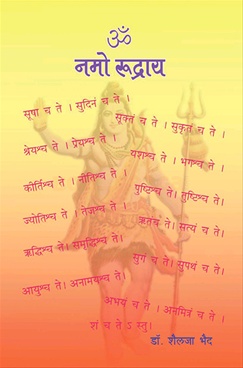 ॐ
नमो रूद्राय
सूषा च ते । सुदिनं च ते ।
सूक्तं च ते । सुकृतं च ते ।
श्रेयश्च ते । प्रेयश्च ते ।
यशश्च ते । भगश्च ते ।
कीर्तिश्च ते । नीतिश्च ते ।
पुष्टिश्च ते। तुष्टिश्च ते।
ज्योतिश्च ते । तेजश्च ते ।
ऋतं च ते। सत्यं च ते।
ऋद्धिश्च ते। समृद्धिश्च ते।
सुगं च ते। सुपथं च ते।
आयुश्च ते। अनामयश्च ते।
अभयं च ते । अनमित्रं च ते ।
शं च ते ऽ स्तु।
डॉ. शैलजा भैद